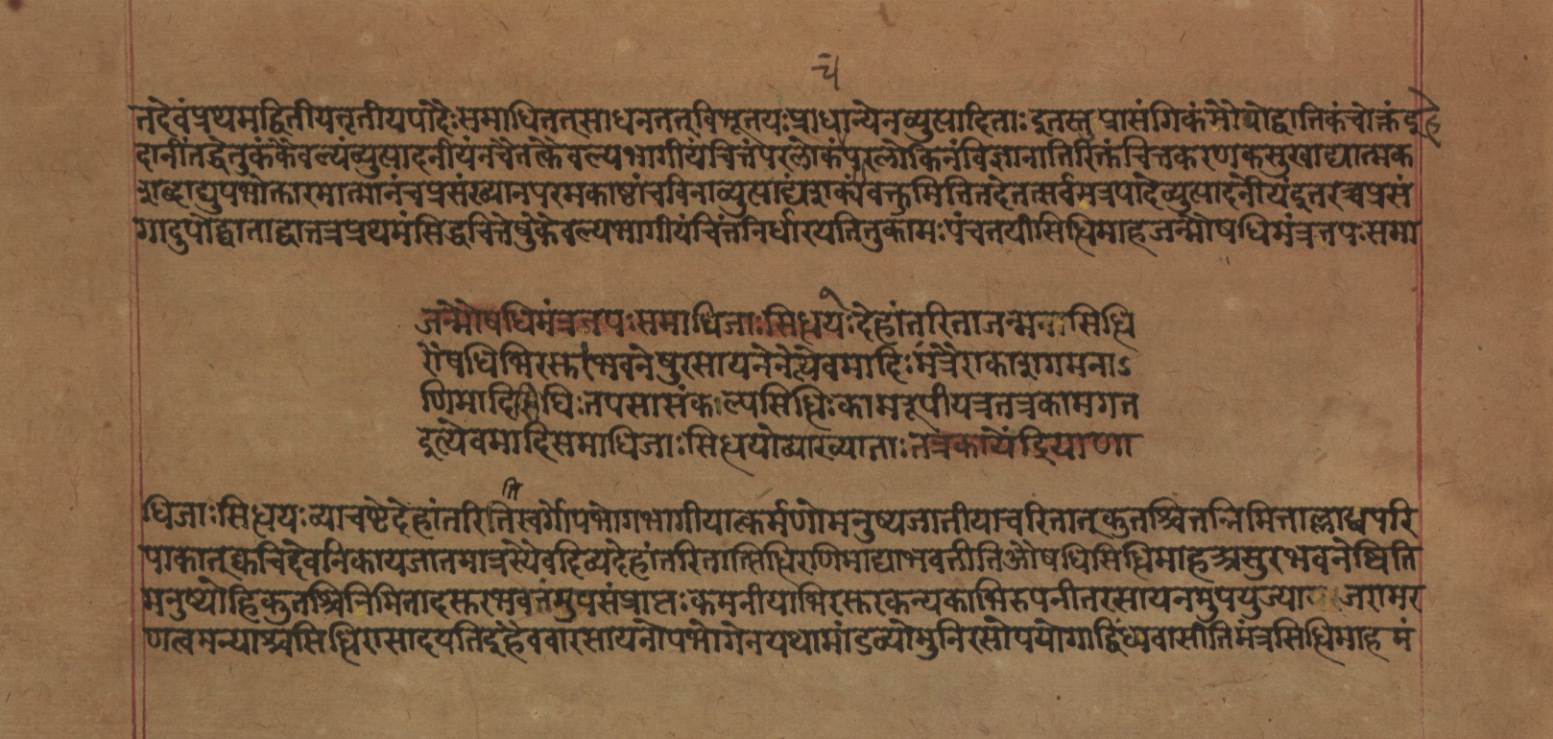 च
तदेवंप्रथमद्वितीयतृतीयपादैःसमाधितत्साधनतत्विभूतयःप्राधान्येनव्युत्पादिताः इतरत्तु प्रासंगिकंमोपोद्घातिकंचोक्तंइहे
दानींतद्धेतुकंकैवल्यंव्युत्पादनीयंनचैतत्कैवल्यभागीयंचित्तंपरलोकंपरलोकिनंविज्ञानातिरिक्तंचित्तकरणकसुखाद्यात्मक
शब्दाद्युपभोक्तारमात्मानंचप्रसंख्यानपरमकाष्ठांचविनाव्युत्पाद्यंशक्यंवक्तुमितितदेतत्सर्वमत्रपादेव्युत्पादनीयंइतरच्चप्रसं
गादुपोद्घाताद्वातत्रप्रथमंसिद्धचित्तेषुकैवल्यभागीयंचित्तंनिर्धारयतितुकामःपंचतयींसिद्धिमाहजन्मोषधिमंत्रतपःसमा
जन्मोषधिमंत्रतपःसमाधिजाःसिद्धयःदेहांतरिताजन्मनासिद्धि
रोषधिभिरसुरभवनेषुरसायनेनेत्येवमादिःमंत्रैराकाशगमनाऽ
णिमादिसिधिःतपसासंकल्पसिद्धिःकामरूपीयत्रतत्रकामगत
इत्येवमादिसमाधिजाःसिद्धयोव्याख्याताःतत्रकायेंद्रियाणा
धिजाःसिद्धयःव्याचष्टेदेहांतरितेतिस्वर्गोपभोगभागीयात्कर्मणोमनुष्यजातीयाचरितात्कुतश्चित्तन्निमित्ताल्लब्धपरि
पाकात्क्वचिद्देवनिकायजातमात्रस्यैवदिव्यदेहांतरितात्सिद्धिरणिमाद्याभवतीतिओषधिसिद्धिमाहअसुरभवनेष्विति
मनुष्योहिकुतश्चिन्निमितादसुरभवनंमुपसंप्राप्तःकमनीयाभिरसुरकन्यकाभिरुपनीतरसायनमुपयुज्याजरामर
णत्वमन्याश्चसिद्धिरासादयतिइहैववारसायनोपभोगेनयथामांडव्योमुनिरसोपयोगाद्विंध्यवासीतिमंत्रसिद्धिमाह मं